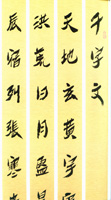 千字文
天地玄黄宇
洪荒日月盈
辰宿列張寒